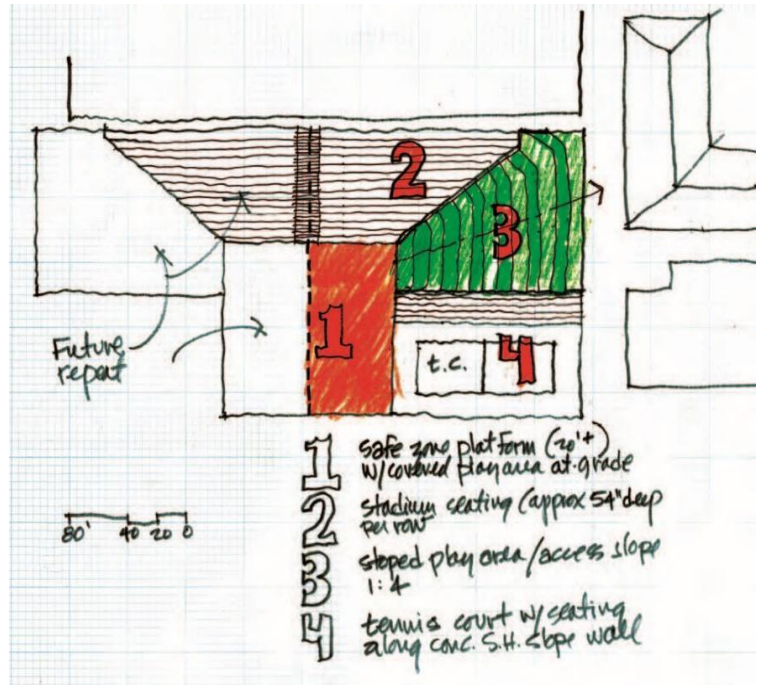 2
3
1
Future
repeat
t.c.
4
80' 40 20 0
1 safe zone platform (20'+)
w/covered play area at grade
2 stadium seating (approx 54" deep
per row
3 sloped play area/access slope
1:4
4 tennis court w/ seating
along conc. S.H. slope wall